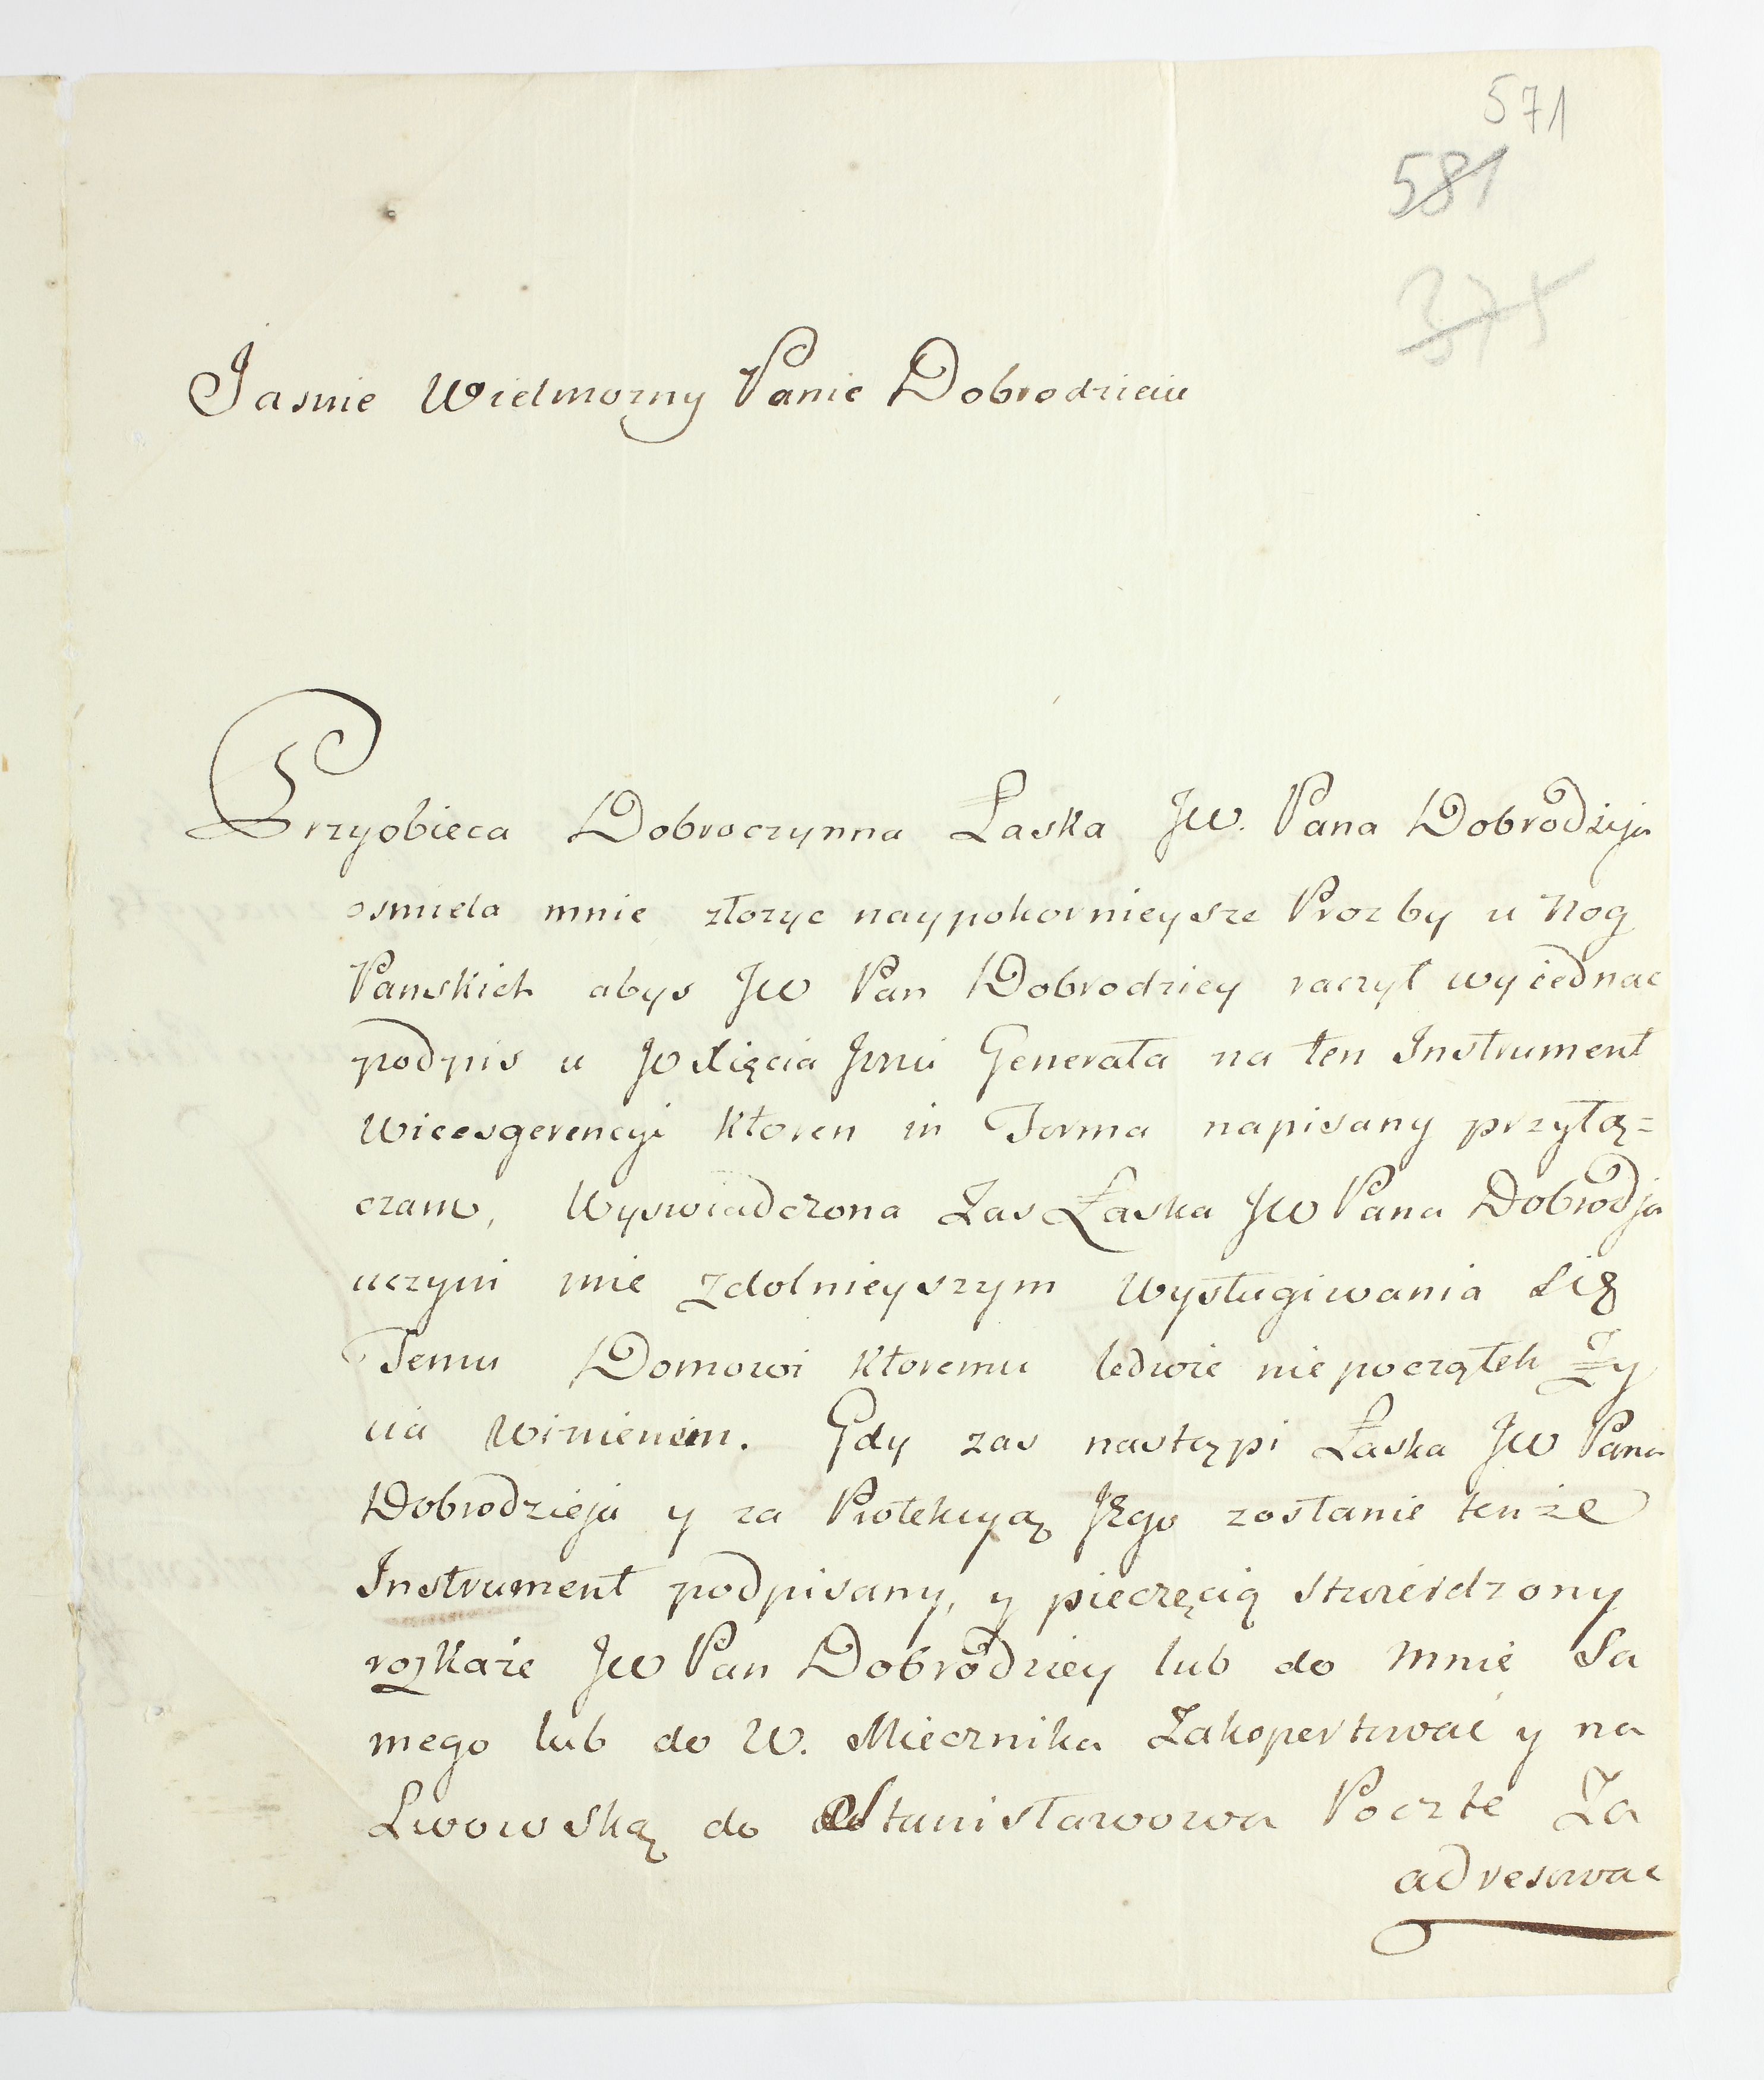 571
581
375
Jasnie Wielmozny Panie Dobrodzieiu
Przyobieca Dobroczynna Łaska JW. Pana Dobrodzija
osmiela mnie złozyc naypokornieysze Prozby u Nog
Panskich abys JW Pan Dobrodziey raczył wyiednac
podpis u JO Xięcia Jmci Generała na ten Instrument
Wicesgerencyi ktoren in Forma napisany przyłą=
czam, Wyswiadczona Zas Łaska JW Pana Dobrodja
uczyni mie zdolnieyszym Wysługiwania się
Temu Domowi ktoremu ledwie nie początek Zy
cia winienem. Gdy zas nastąpi Łaska JW Pana
Dobrodzieja y za Protekcyą Jego zostanie tenże
Instrument podpisany, y pieczęcią stwierdzony
rozkaże JW Pan Dobrodziey lub do mnie Sa
mego lub do W. Miecznika Zakopertować y na
Lwowską do Stanisławowa Poczte Za
adresowac